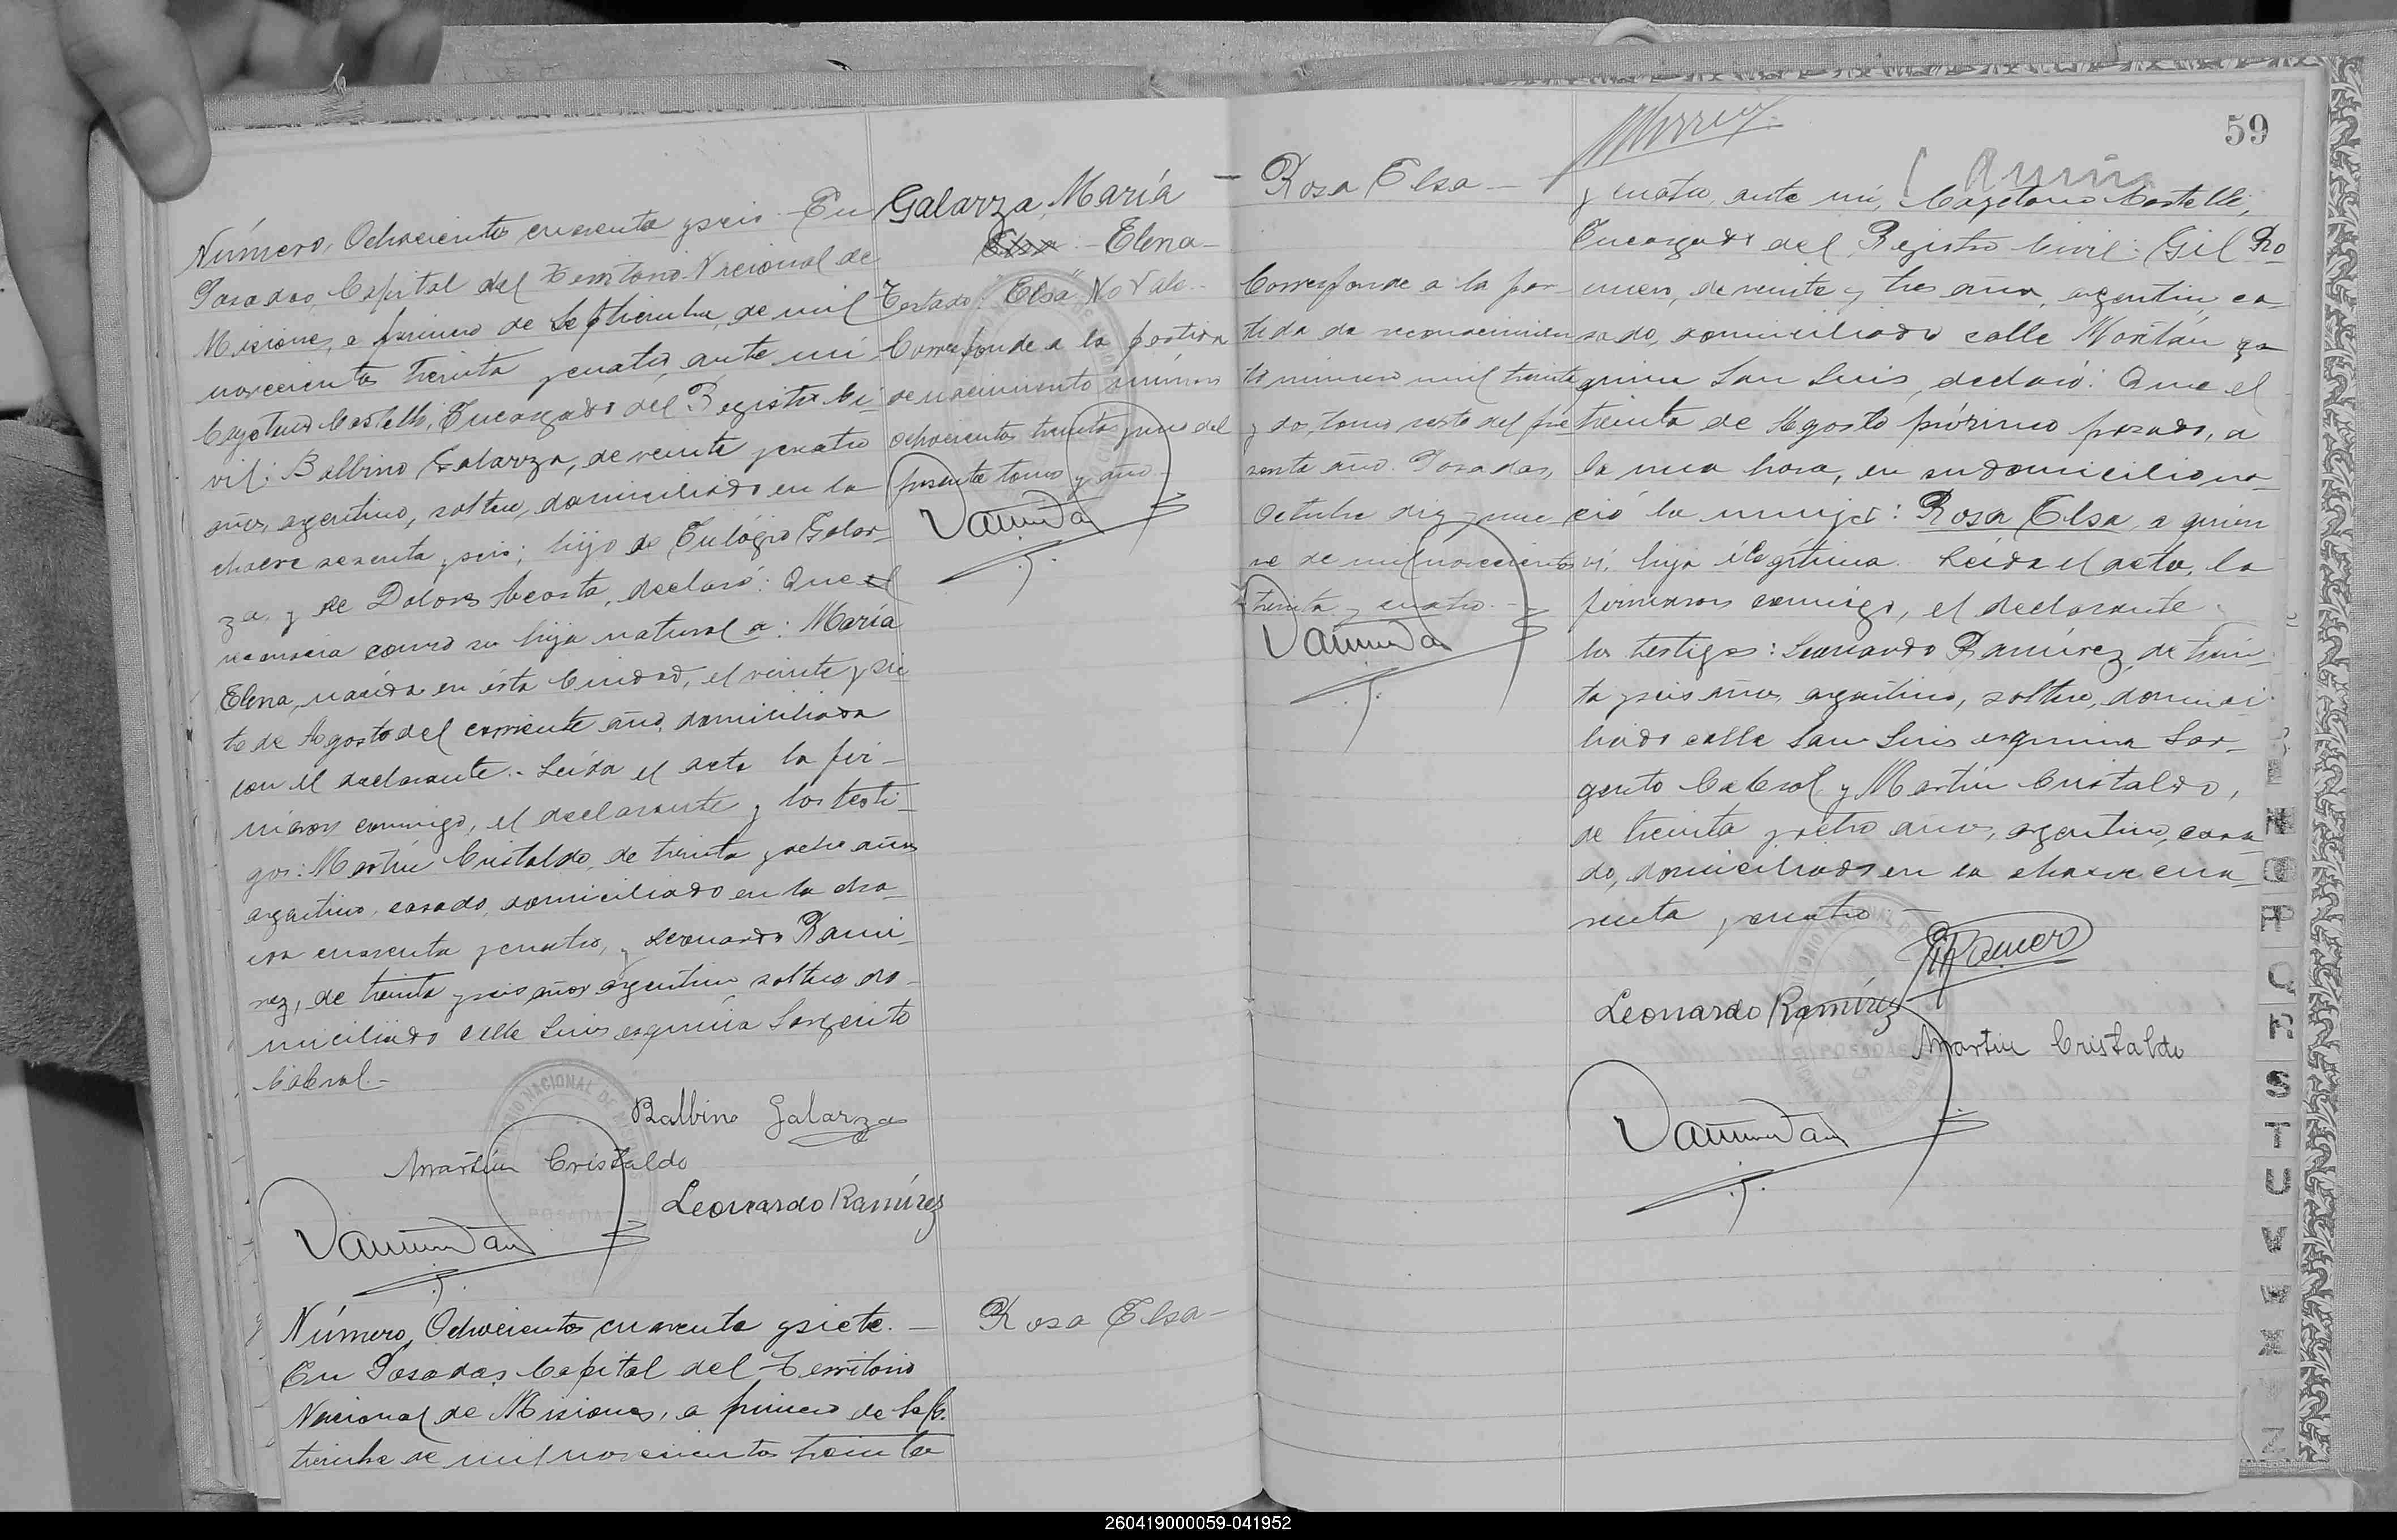 Número, Ochocientos cuarenta y seis. - En
Posadas, Capital del Territorio Nacional de
Misiones, a primero de Septiembre, de mil
novecientos treinta y cuatro, ante mi
Cayetano Castelli, Encargado del Registro Ci-
vil: Balbino Galarza, de veinte y cuatro
años, argentino, soltero, domiciliado en la
chacra sesenta y seis; hijo de Eulógio Galar-
za, y de Dolores Acosta, declaró: Que
reconocía como su hija natural a: María
Elena, nacida en ésta Ciudad, el veinte y sie-
te de Agosto del corriente año, domiciliada
con el declarante. - Leída el acta la fir-
maron conmigo, el declarante y los testi-
gos: Martín Cristaldo, de treinta y ocho años
argentino, casado, domiciliado en la cha-
cra cuarenta y cuatro, y Leonardo Rami-
rez, de treinta y seis años argentino soltero do-
miciliado calle Luis esquina Sargento
Cabral. -
Balbino Galarza
Martín Cristaldo
Leonardo Ramírez
Galarza, María
Elsa - Elena -
Testado: "Elsa" No Vale. -
Corresponde a la partida
de nacimiento número
ochocientos treinta y uno del
presente tomo y año. -
Número, Ochocientos cuarenta y siete. -
En Posadas, Capital del Territorio
Nacional de Misiones, a primero de Sep-
tiembre de mil novecientos treinta
Rosa Elsa -
59
- Rosa Elsa -
Corresponde a la par-
tida de reconocimien
to número mil treinta
y dos, tomo sexto del pre
sente año. Posadas,
Octubre diez y nue
ve de mil novecientos
treinta y cuatro. -
y cuatro, ante mí, Cayetano Castelli,
Encargado del Registro Civil: Gil Ro-
mero, de veinte y tres años, argentino, ca-
sado, domiciliado calle Montán es
quina San Luis, declaró: Que el
treinta de Agosto próximo pasado, a
la una hora, en su domicilio na-
ció la mujer: Rosa Elsa, a quien
ví, hija ilegítima. Leída el acta, la
firmaron conmigo, el declarante
los testigos: Leonardo Ramírez, de trein-
ta y seis años, argentino, soltero, domici-
liado calle San Luis esquina Sar-
gento Cabral y Martín Cristaldo,
de treinta y ocho años, argentino, casa-
do, domiciliado en la chacra cua-
renta y cuatro -
Leonardo Ramírez
Martín Cristaldo
N
O
P
Q
S
T
U
V
W
X
Z
260419000059-041952